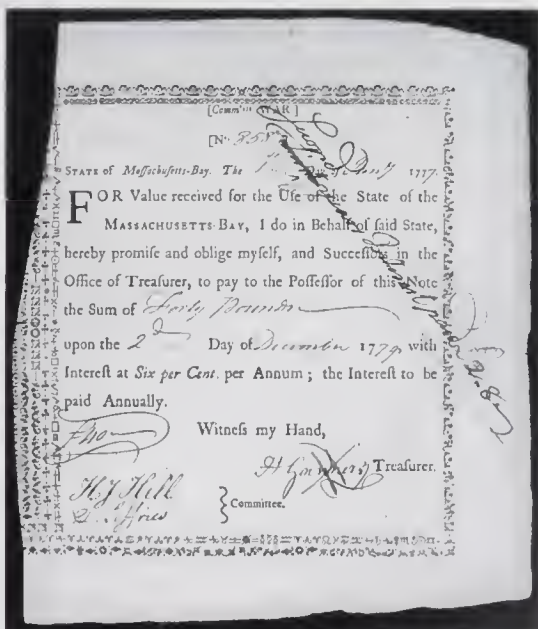 [Comm'rs STAR]
[No. 358
STATE of Massachusetts-Bay. The Day of 1777.
FOR Value received for the Use of the State of the
MASSACHUSETTS-BAY, I do in Behalf of said State,
hereby promise and oblige myself, and Successors in the
Office of Treasurer, to pay to the Possessor of this Note
the Sum of Forty Pounds
upon the 2d Day of December 1779, with
Interest at Six per Cent. per Annum; the Interest to be
paid Annually.
Witness my Hand,
H Gardner Treasurer.
H J Hill
Committee.